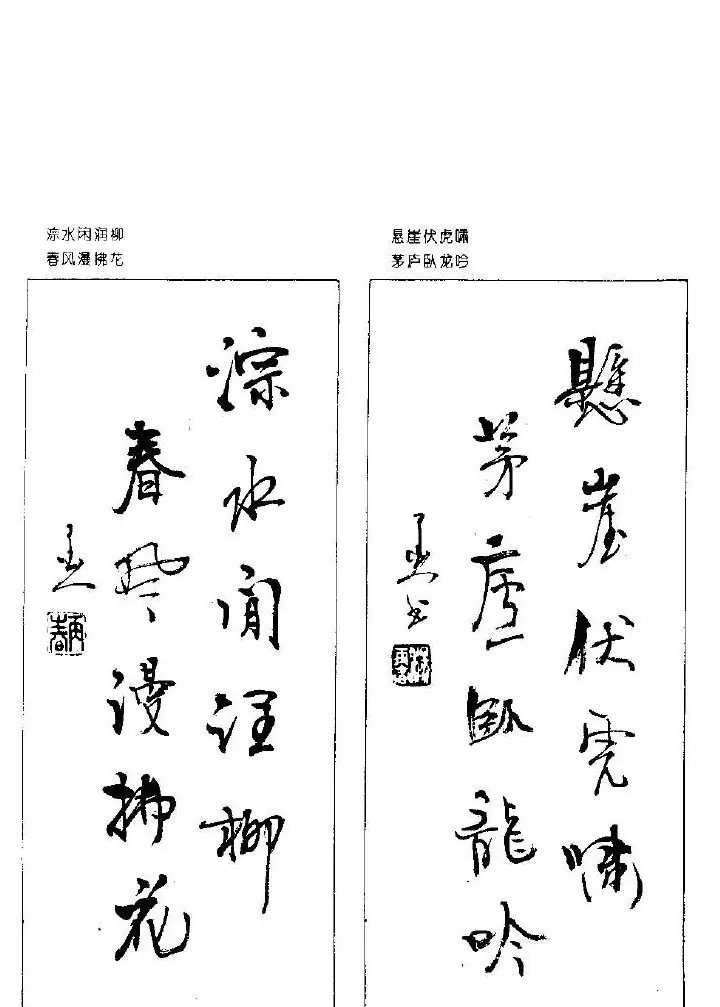 淙水闲润柳
春风漫拂花
悬崖伏虎啸
茅庐卧龙吟
懸崖伏虎嘯
茅廬臥龍吟
淙水閒潤柳
春風漫拂花